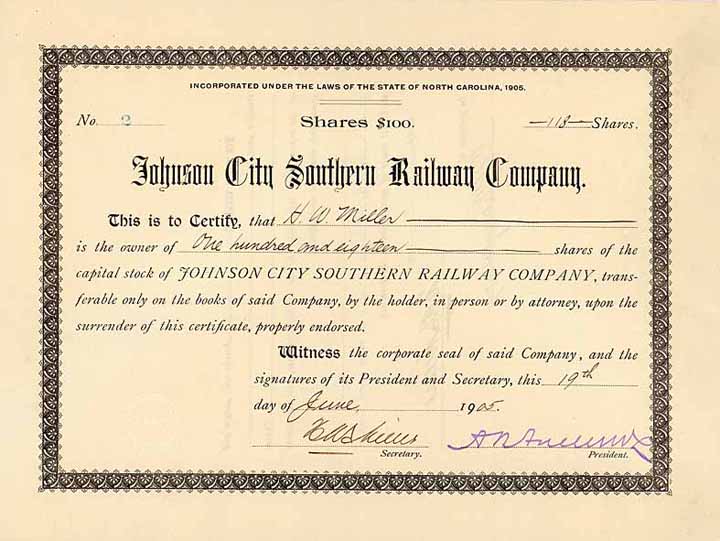 INCORPORATED UNDER THE LAWS OF THE STATE OF NORTH CAROLINA, 1905.
No. 2 Shares $100. 118 Shares.
Johnson City Southern Railway Company.
This is to Certify, that H. W. Miller
is the owner of One hundred and eighteen shares of the
capital stock of JOHNSON CITY SOUTHERN RAILWAY COMPANY, trans-
ferable only on the books of said Company, by the holder, in person or by attorney, upon the
surrender of this certificate, properly endorsed.
Witness the corporate seal of said Company, and the
signatures of its President and Secretary, this 19th
day of June, 1905.
Secretary. President.